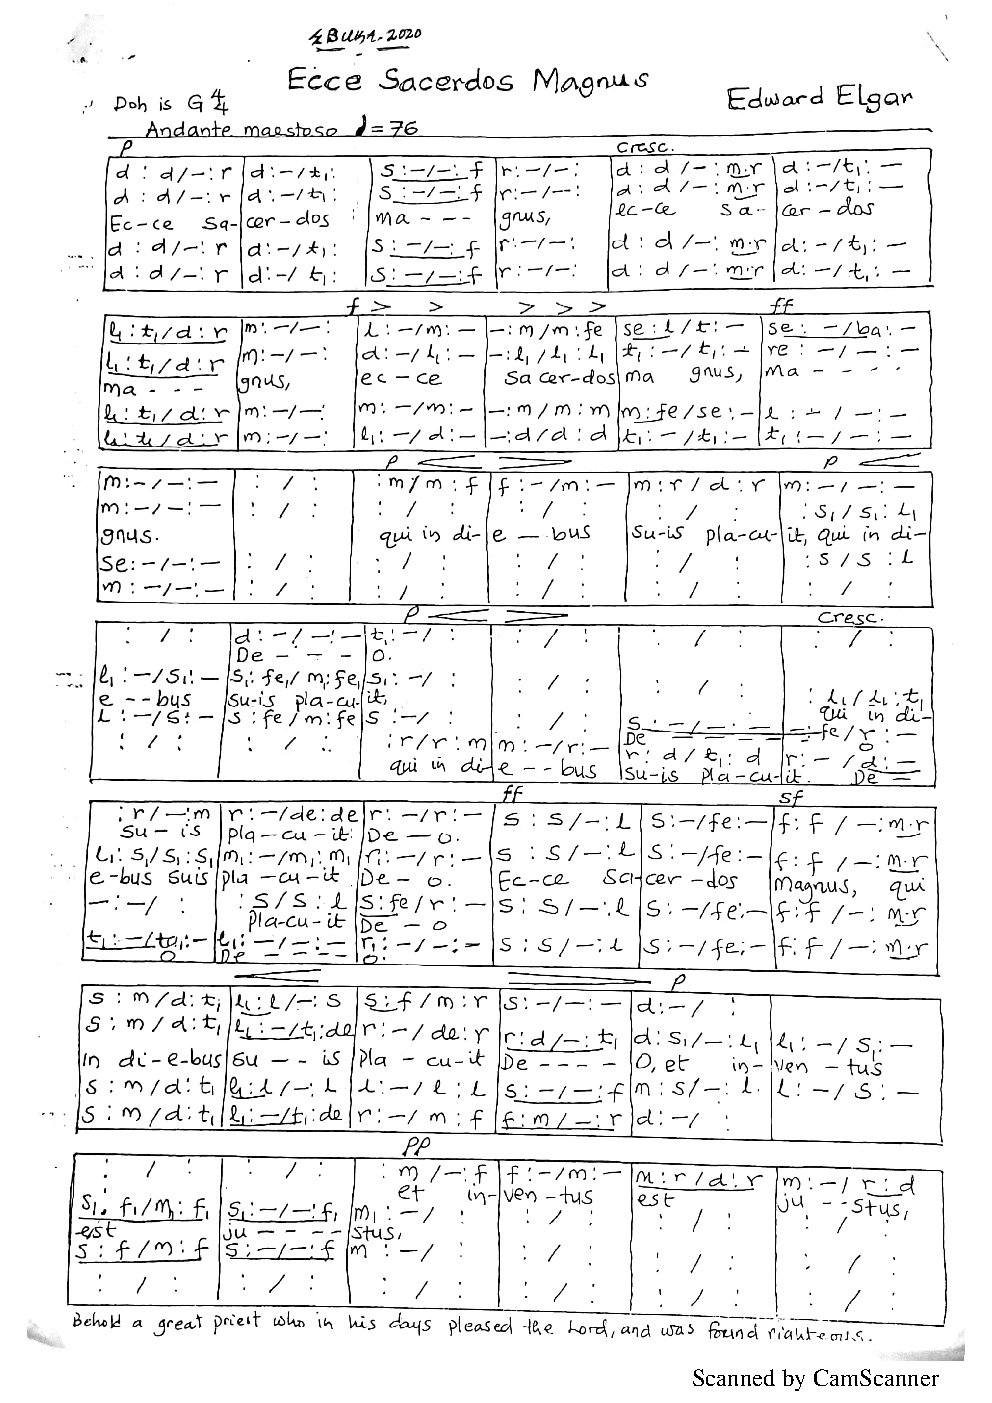 ZBUKA. 2020
Ecce Sacerdos Magnus
Doh is G 4/4
Edward Elgar
Andante maestoso ♩=76
p cresc.
d : d/–: r | d:–/t₁: | s:–/–: f | r:–/–: | d: d/–: m.r | d:–/t₁: –
d : d/–: r | d:–/t₁: | s:–/–: f | r:–/–: | d: d/–: m.r | d:–/t₁: –
Ec-ce Sa-cer-dos ma - - - gnus, ec-ce sa- cer-dos
d : d/–: r | d:–/t₁: | s:–/–: f | r:–/–: | d: d/–: m.r | d:–/t₁:
d : d/–: r | d:–/t₁: | s:–/–: f | r:–/–: | d: d/–: m.r | d:–/t₁: –
f > > > > > ff
l₁: t₁/d: r | m:–/–: | l:–/m: – | –: m/m: fe | se: l/t: – | se: –/ba: –
l₁: t₁/d: r | m:–/–: | d:–/l₁: – | –: l₁/l₁: l₁ | t₁: –/t₁: – | re: –/–: –
ma - - - gnus, ec-ce sacer-dos ma gnus, ma - - - -
l₁: t₁/d: r | m:–/–: | m:–/m: – | –: m/m: m | m: fe/se: – | l: –/–: –
l₁: t₁/d: r | m:–/–: | l₁:–/d: – | –: d/d: d | t₁: –/t₁: – | t₁: –/–: –
p < > p <
m:–/–: – | : / : | : m/m: f | f:–/m: – | m: r/d: r | m:–/–: –
m:–/–: – | : / : | : / : | : / : | : / : | : s₁/s₁: l₁
gnus. qui in di- e – bus su-is pla-cu-it, qui in di-
se:–/–: – | : / : | : / : | : / : | : / : | : s/s: l
m:–/–: – | : / : | : / : | : / : | : / : | : / :
p < > cresc.
: / : | d:–/–: – | t₁:–/ : | : / : | : / : | : / :
De - - - 0.
l₁:–/s₁: – | s₁: fe₁/m₁: fe₁ | s₁:–/ : | : / : | : / : | : l₁/l₁: t₁
e - - bus su-is pla-cu-it, qui in di-
l:–/s: – | s: fe/m: fe | s:–/ : | : / : | s:–/–: – | –: fe/r: –
De - - - - 0
: / : | : / : | : r/r: m | m:–/r: – | r: d/t₁: d | r:–/d: –
qui in di-e - - bus su-is pla-cu-it. De –
ff sf
: r/–: m | r:–/de: de | r:–/r: – | s: s/–: l | s:–/fe: – | f: f/–: m.r
su – is pla-cu-it: De – 0.
l₁: s₁/s₁: s₁ | m₁:–/m₁: m₁ | r₁:–/r: – | s: s/–: l | s:–/fe: – | f: f/–: m.r
e-bus suis pla-cu-it De – 0. Ec-ce Sa-cer-dos magnus, qui
–:–/ : | : s/s: l | s: fe/r: – | s: s/–: l | s:–/fe: – | f: f/–: m.r
pla-cu-it De – 0
t₁:–/ta₁: – | l₁:–/–: – | r₁:–/–: – | s: s/–: l | s:–/fe: – | f: f/–: m.r
0 De - - - - 0.
< > p
s: m/d: t₁ | l₁: l/–: s | s: f/m: r | s:–/–: – | d:–/ : |
s: m/d: t₁ | l₁:–/t₁: de | r:–/de: r | r: d/–: t₁ | d: s₁/–: l₁ | l₁:–/s₁: –
in di-e-bus su - - is pla - cu-it De - - - - 0, et in-ven-tus
s: m/d: t₁ | l₁: l/–: l | l:–/l: l | s:–/–: f | m: s/–: l. | l:–/s: –
s: m/d: t₁ | l₁:–/t₁: de | r:–/m: f | f: m/–: r | d:–/ : |
pp
: / : | : / : | : m/–: f | f:–/m: – | m: r/d: r | m:–/r: d
et in-ven-tus est ju - - - stus,
s₁. f₁/m₁: f₁ | s₁:–/–: f₁ | m₁:–/ : | : / : | : / : | : / :
est ju - - - - stus,
s: f/m: f | s:–/–: f | m:–/ : | : / : | : / : | : / :
: / : | : / : | : / : | : / : | : / : | : / :
Behold a great priest who in his days pleased the Lord, and was found righteous.
Scanned by CamScanner